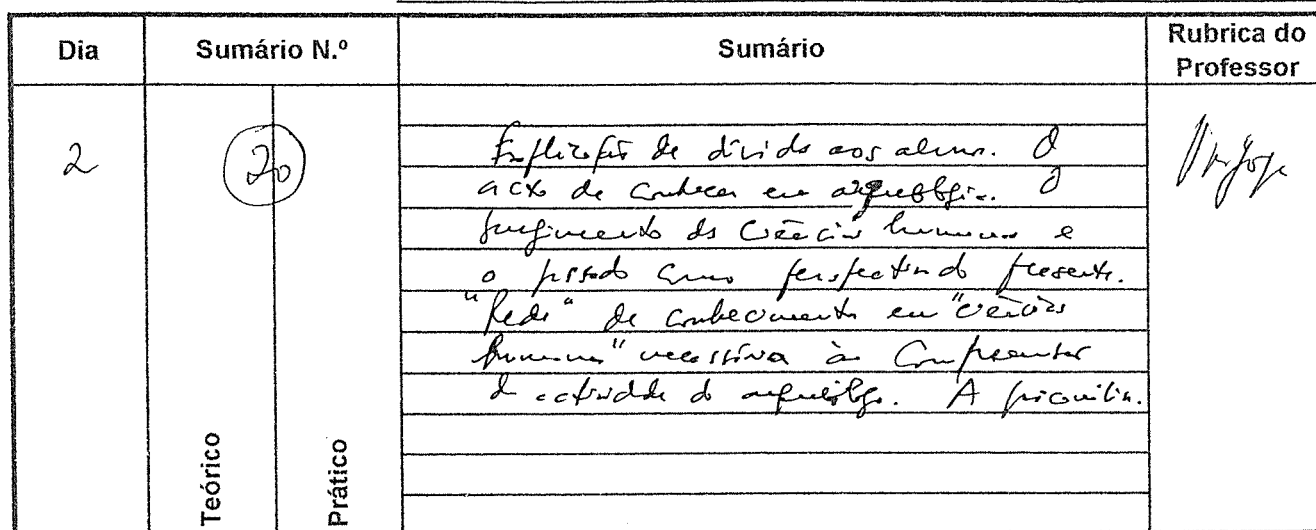 Dia
Sumário N.º
Sumário
Rubrica do
Professor
2
20
Explicação de dúvidas aos alunos. O
acto de conhecer em arqueologia. O
surgimento das ciências humanas e
o passado como perspectiva do presente.
"Rede" de conhecimento em "ciências
humanas" necessária à compreensão
da actividade do arqueólogo. A
Teórico
Prático